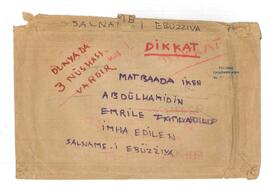 SALNAME-İ EBÜZZİYA
DİKKAT
DÜNYADA
3 NÜSHASI
VARDIR
MATBAADA İKEN
ABDÜLHAMİDİN
EMRİLE
İMHA EDİLEN
SALNAME-İ EBÜZZİYA